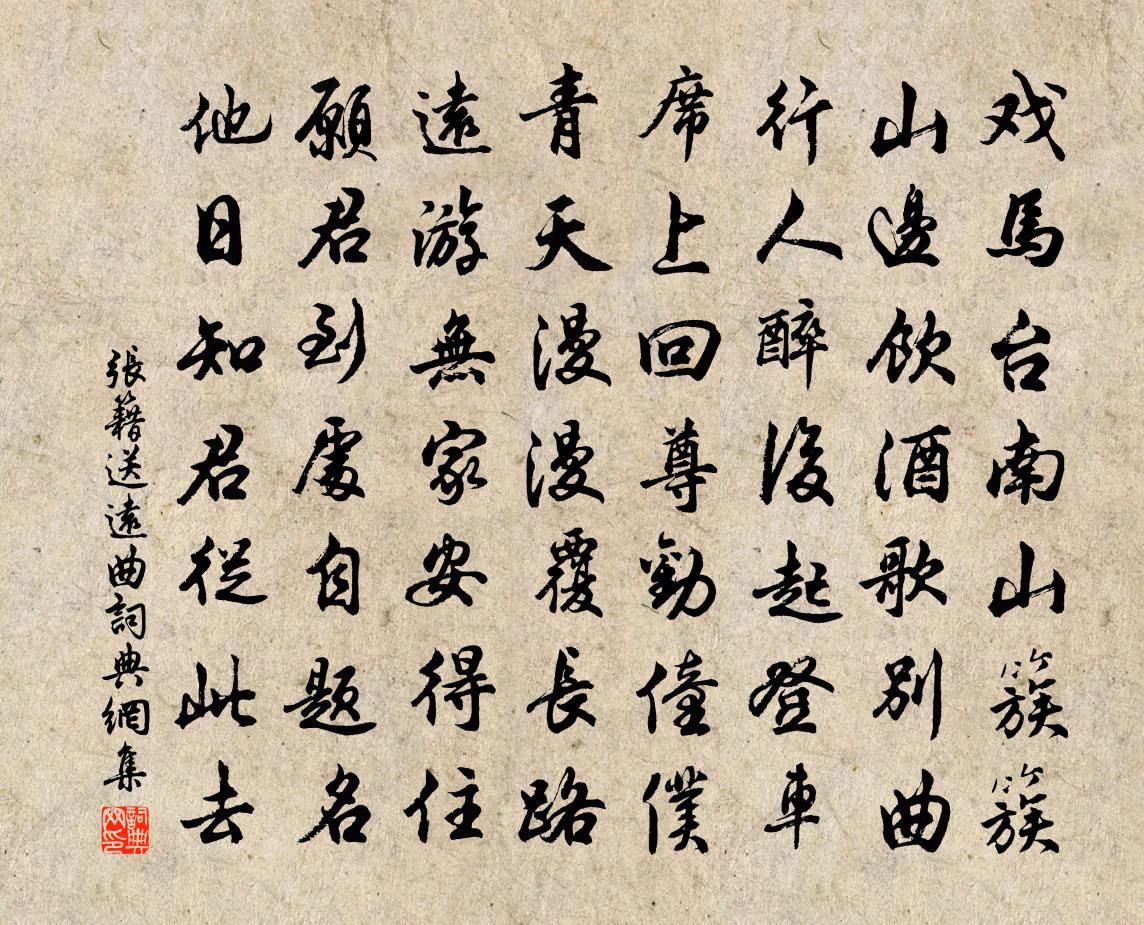 戏馬台南山簇簇
山邊飲酒歌別曲
行人醉後起登車
席上回尊勸僮僕
青天漫漫覆長路
遠游無家安得住
願君到處自題名
他日知君從此去
張籍送遠曲詞典網集
詞典网印